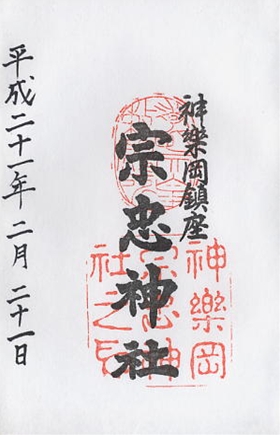 神樂岡鎮座
宗忠神社
平成二十一年二月二十一日
神樂岡
宗忠神
社之印